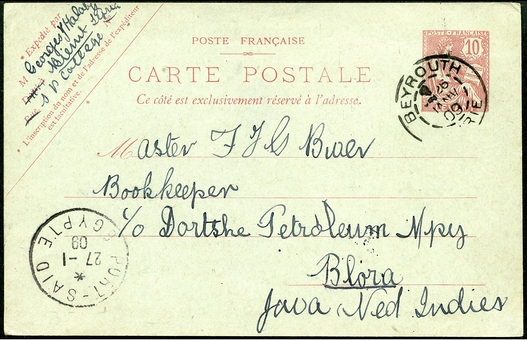 Expédié par
M Georges Halaby
Syrie
S P College
L'inscription du nom et de l'adresse de l'expéditeur
est facultative.
POSTE FRANÇAISE
CARTE POSTALE
Ce côté est exclusivement réservé à l'adresse.
POSTE FRANÇAISE
10
BEYROUTH
09
SYRIE
Master F J G Bwer
Bookkeeper
c/o Dortshe Petroleum Mpy
Blora
Java Ned Indies
PORT-SAID
EGYPTE
27-1
09